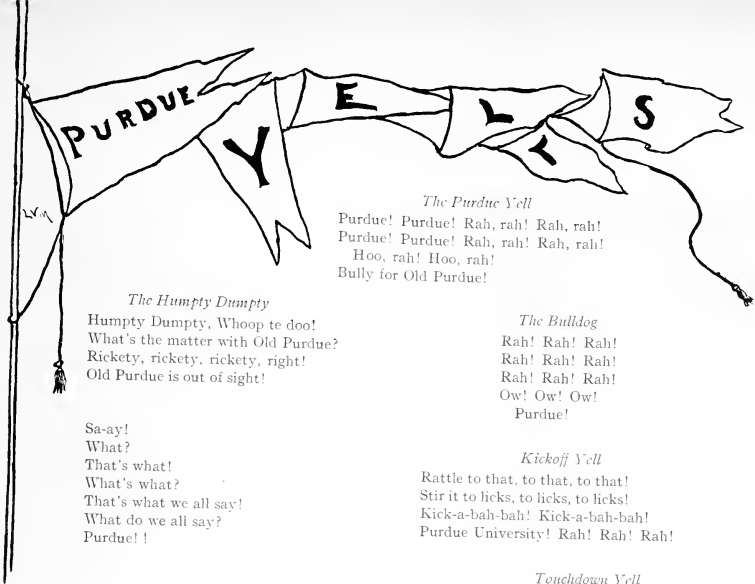 PURDUE YELLS
The Purdue Yell
Purdue! Purdue! Rah, rah! Rah, rah!
Purdue! Purdue! Rah, rah! Rah, rah!
Hoo, rah! Hoo, rah!
Bully for Old Purdue!
The Humpty Dumpty
Humpty Dumpty, Whoop te doo!
What's the matter with Old Purdue?
Rickety, rickety, rickety, right!
Old Purdue is out of sight!
Sa-ay!
What?
That's what!
What's what?
That's what we all say!
What do we all say?
Purdue! !
The Bulldog
Rah! Rah! Rah!
Rah! Rah! Rah!
Rah! Rah! Rah!
Ow! Ow! Ow!
Purdue!
Kickoff Yell
Rattle to that, to that, to that!
Stir it to licks, to licks, to licks!
Kick-a-bah-bah! Kick-a-bah-bah!
Purdue University! Rah! Rah! Rah!
Touchdown Yell